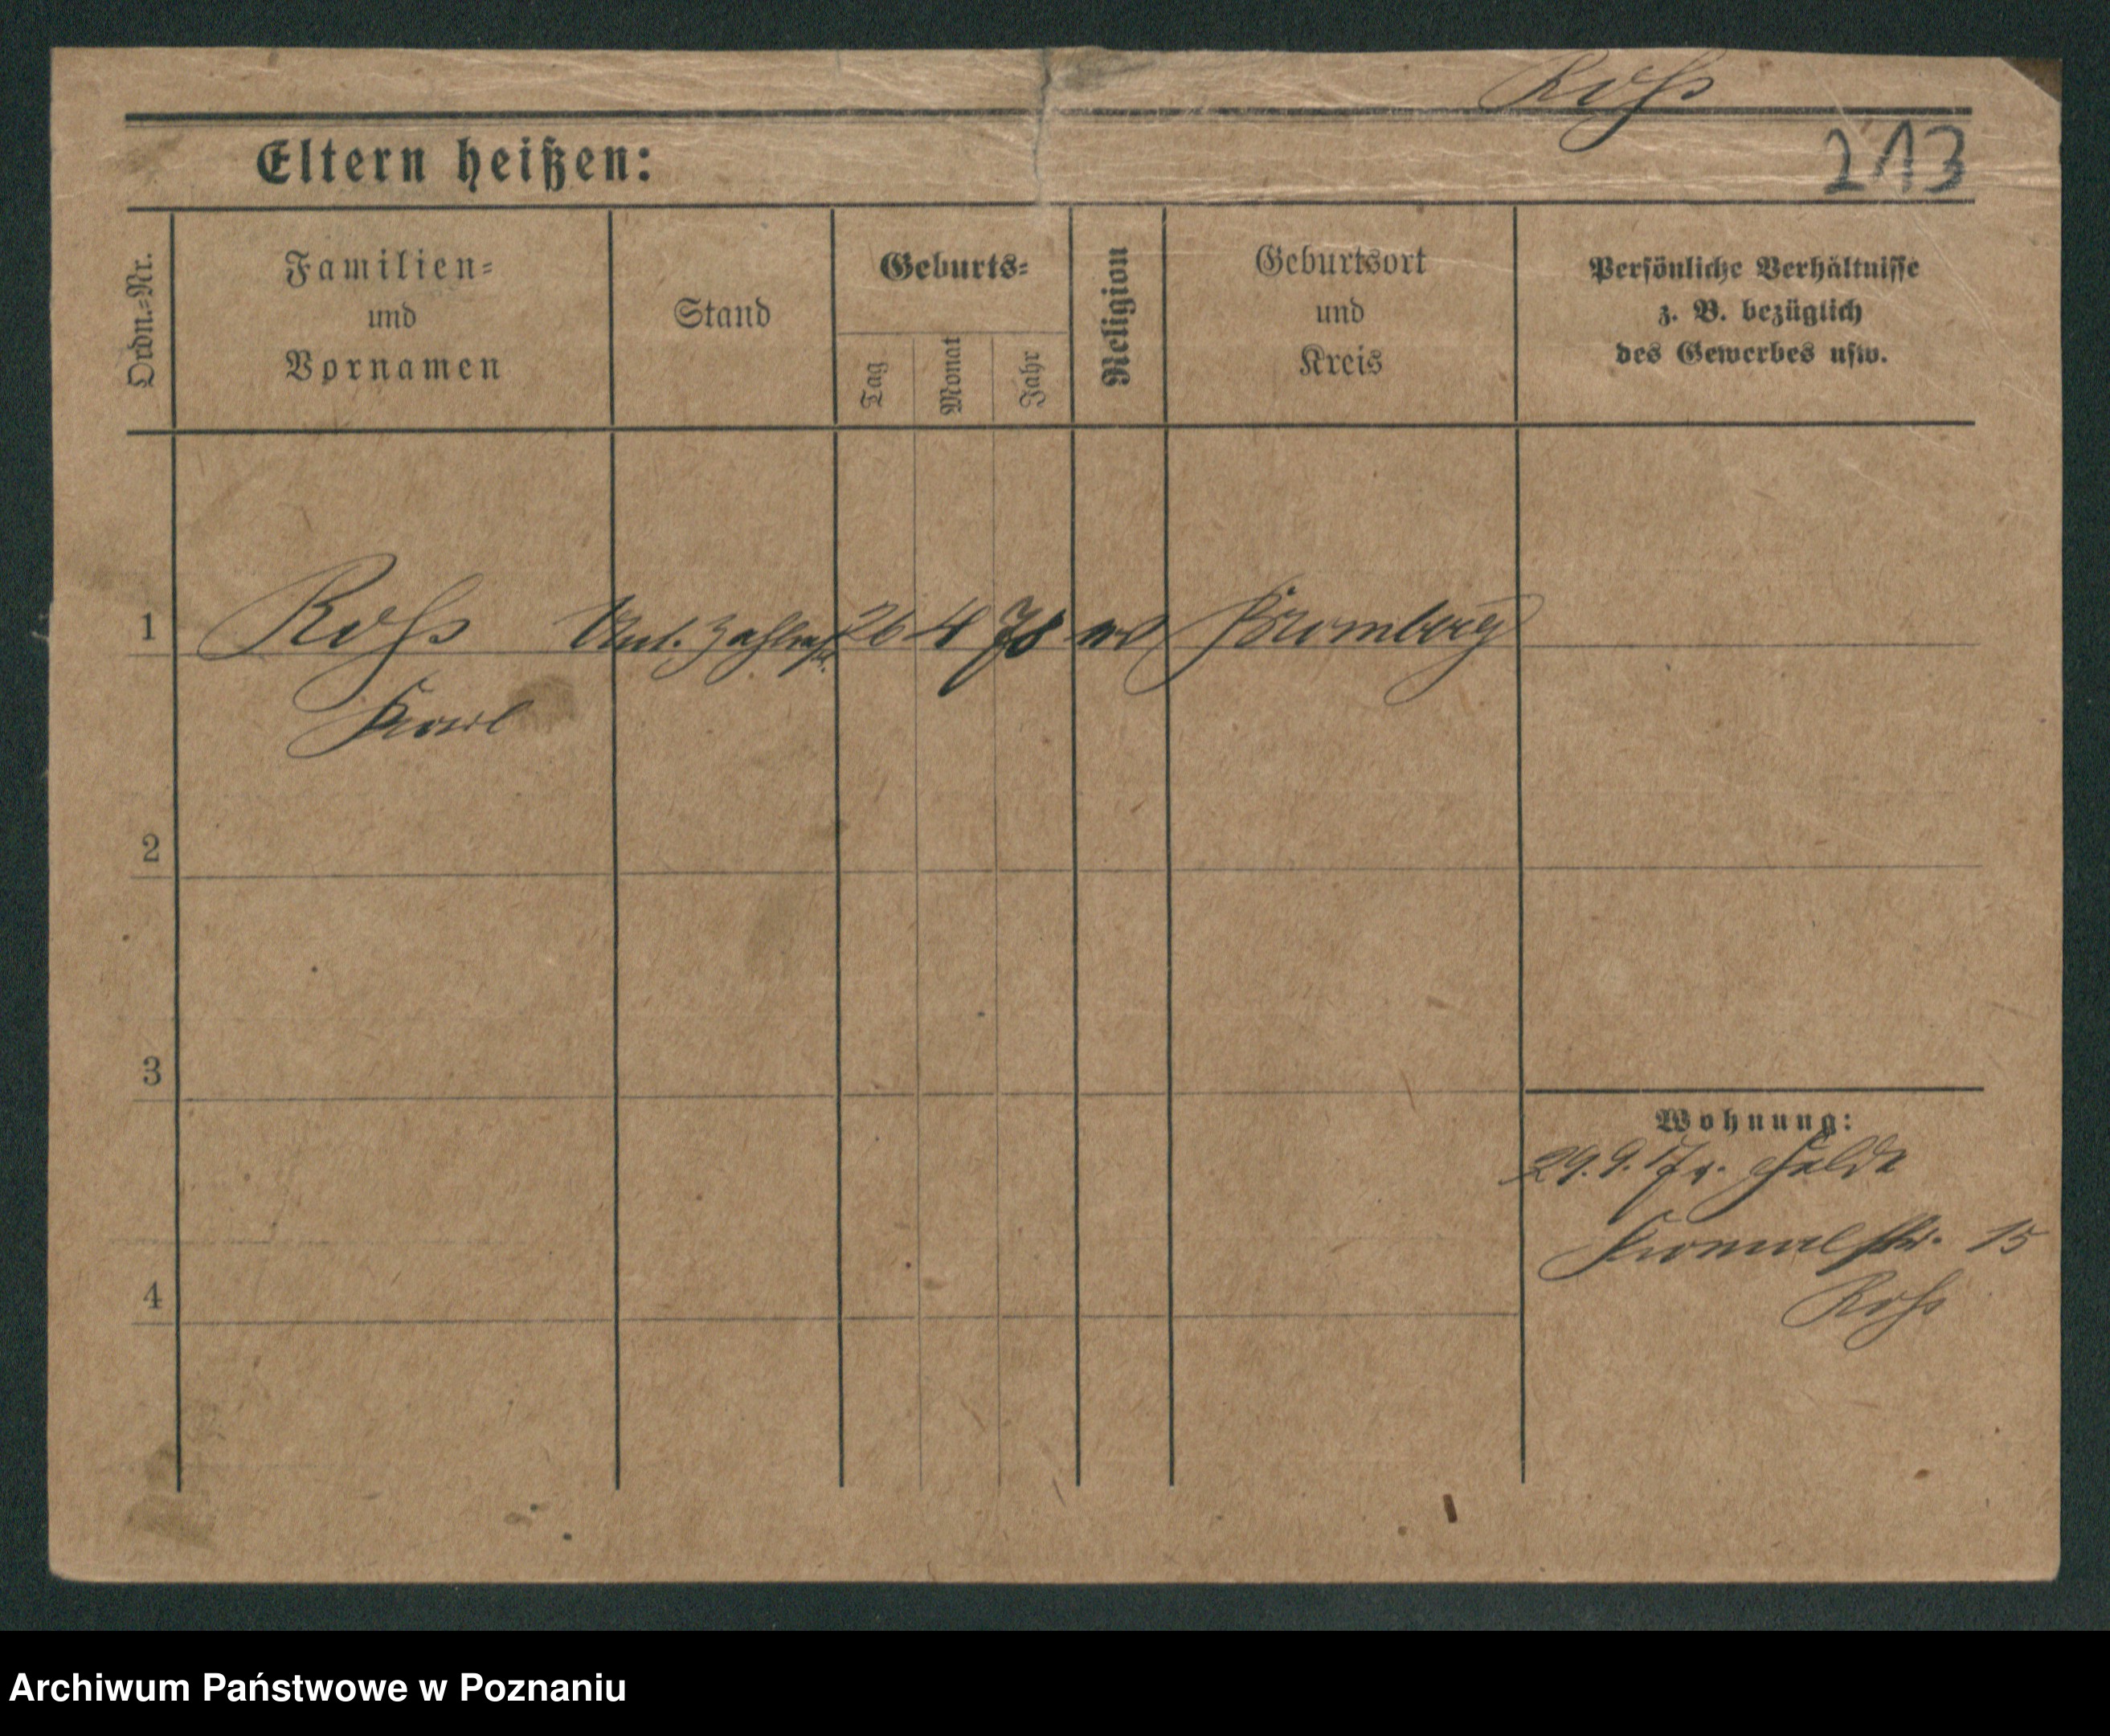 Roß
213
Eltern heißen:
Ordn.-Nr.
Familien-
und
Vornamen
Stand
Geburts-
Tag
Monat
Jahr
Religion
Geburtsort
und
Kreis
Persönliche Verhältnisse
z. B. bezüglich
des Gewerbes usw.
1 Roß Unt. Zahlmstr. 26 4 78 ev Bromberg
Karl
2
3
Wohnung:
29. 9. 17 v. Felde
15
4
Roß
Archiwum Państwowe w Poznaniu